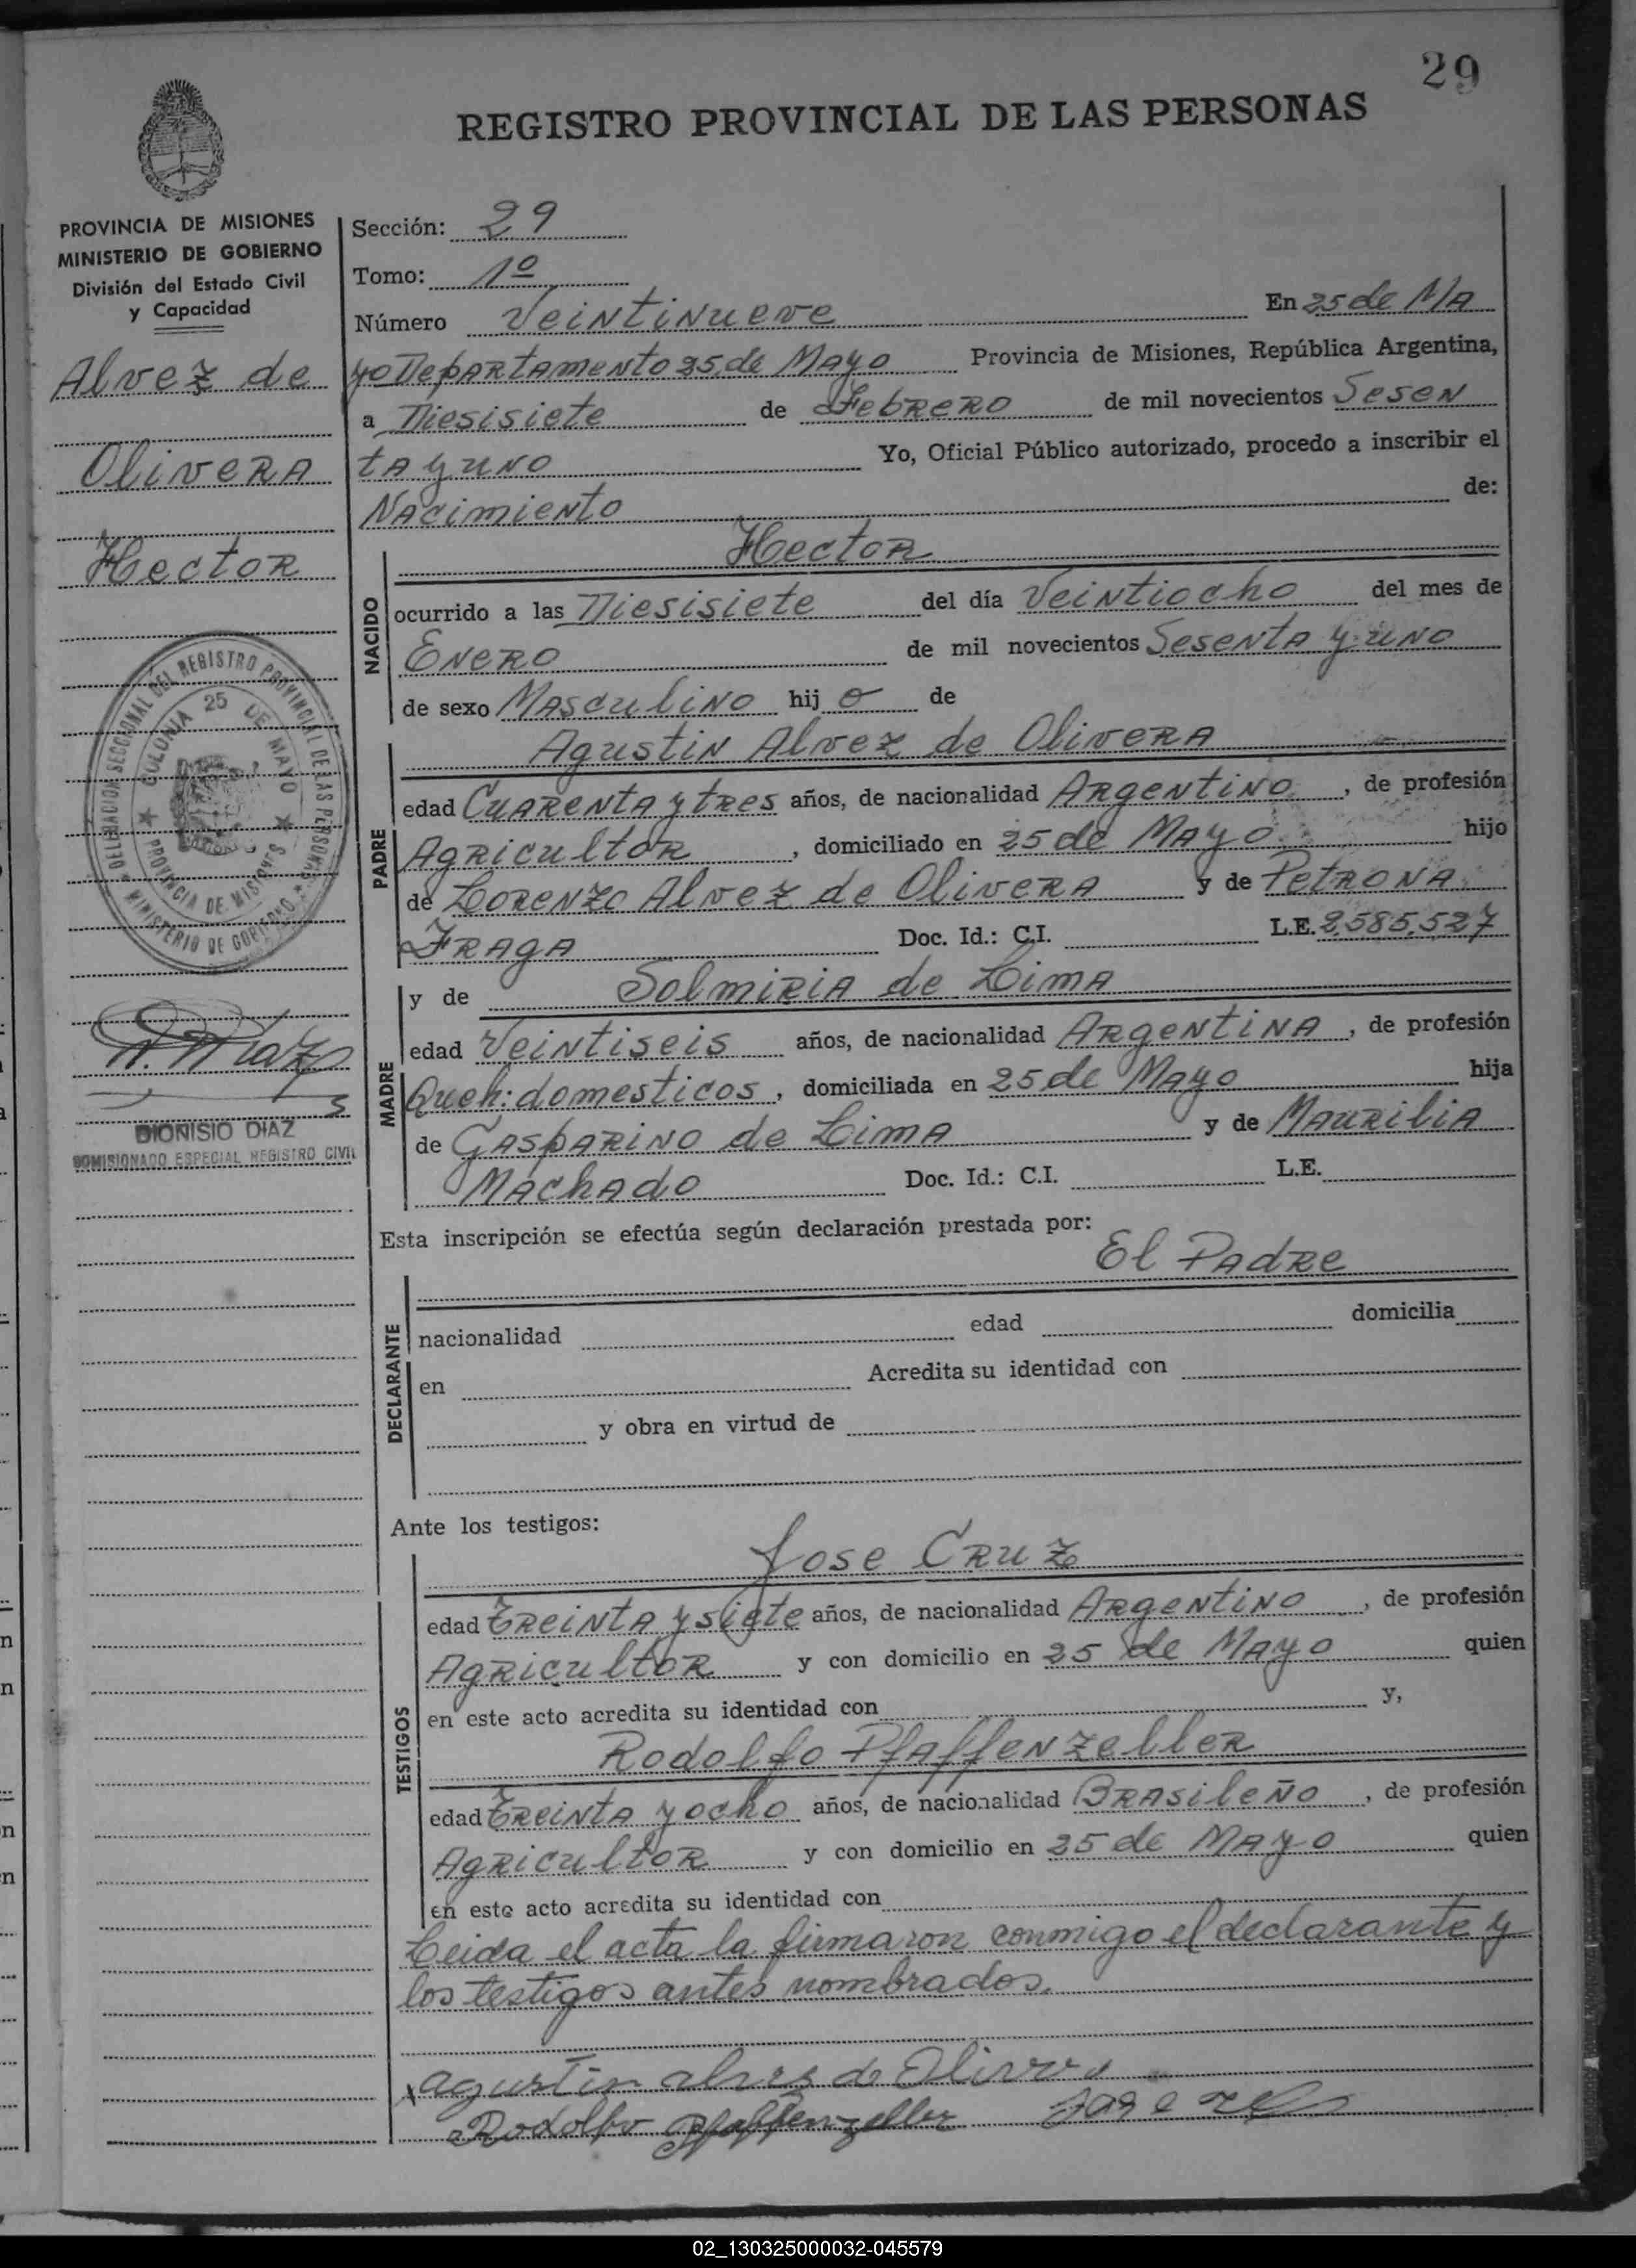 29
REGISTRO PROVINCIAL DE LAS PERSONAS
PROVINCIA DE MISIONES
MINISTERIO DE GOBIERNO
División del Estado Civil
y Capacidad
Alvez de
Olivera
Hector
DELEGACION SECCIONAL DEL REGISTRO PROVINCIAL DE LAS PERSONAS
★ MINISTERIO DE GOBIERNO ★
★ COLONIA 25 DE MAYO ★
PROVINCIA DE MISIONES
D. Diaz
DIONISIO DIAZ
COMISIONADO ESPECIAL REGISTRO CIVIL
Sección: 29
Tomo: 1º
Número Veintinueve En 25 de Ma
yo Departamento 25 de Mayo Provincia de Misiones, República Argentina,
a Diesisiete de Febrero de mil novecientos Sesen
ta y uno Yo, Oficial Público autorizado, procedo a inscribir el
Nacimiento de:
Hector
NACIDO
ocurrido a las Diesisiete del día Veintiocho del mes de
Enero de mil novecientos Sesenta y uno
de sexo Masculino hij o de
Agustin Alvez de Olivera
PADRE
edad Cuarenta y tres años, de nacionalidad Argentino, de profesión
Agricultor, domiciliado en 25 de Mayo hijo
de Lorenzo Alvez de Olivera y de Petrona
Fraga Doc. Id.: C.I. L.E. 2.585.527
y de Solmiria de Lima
MADRE
edad Veintiseis años, de nacionalidad Argentina, de profesión
Queh: domesticos, domiciliada en 25 de Mayo hija
de Gasparino de Lima y de Maurilia
Machado Doc. Id.: C.I. L.E.
Esta inscripción se efectúa según declaración prestada por:
El Padre
DECLARANTE
nacionalidad edad domicilia
en Acredita su identidad con
y obra en virtud de
Ante los testigos:
Jose Cruz
TESTIGOS
edad Treinta y siete años, de nacionalidad Argentino, de profesión
Agricultor y con domicilio en 25 de Mayo quien
en este acto acredita su identidad con y,
Rodolfo Pfaffenzeller
edad Treinta y ocho años, de nacionalidad Brasileño, de profesión
Agricultor y con domicilio en 25 de Mayo quien
en este acto acredita su identidad con
Leida el acta la firmaron conmigo el declarante y
los testigos antes nombrados.
agustin alves de Olivera
Rodolfo Pfaffenzeller
02_130325000032-045579